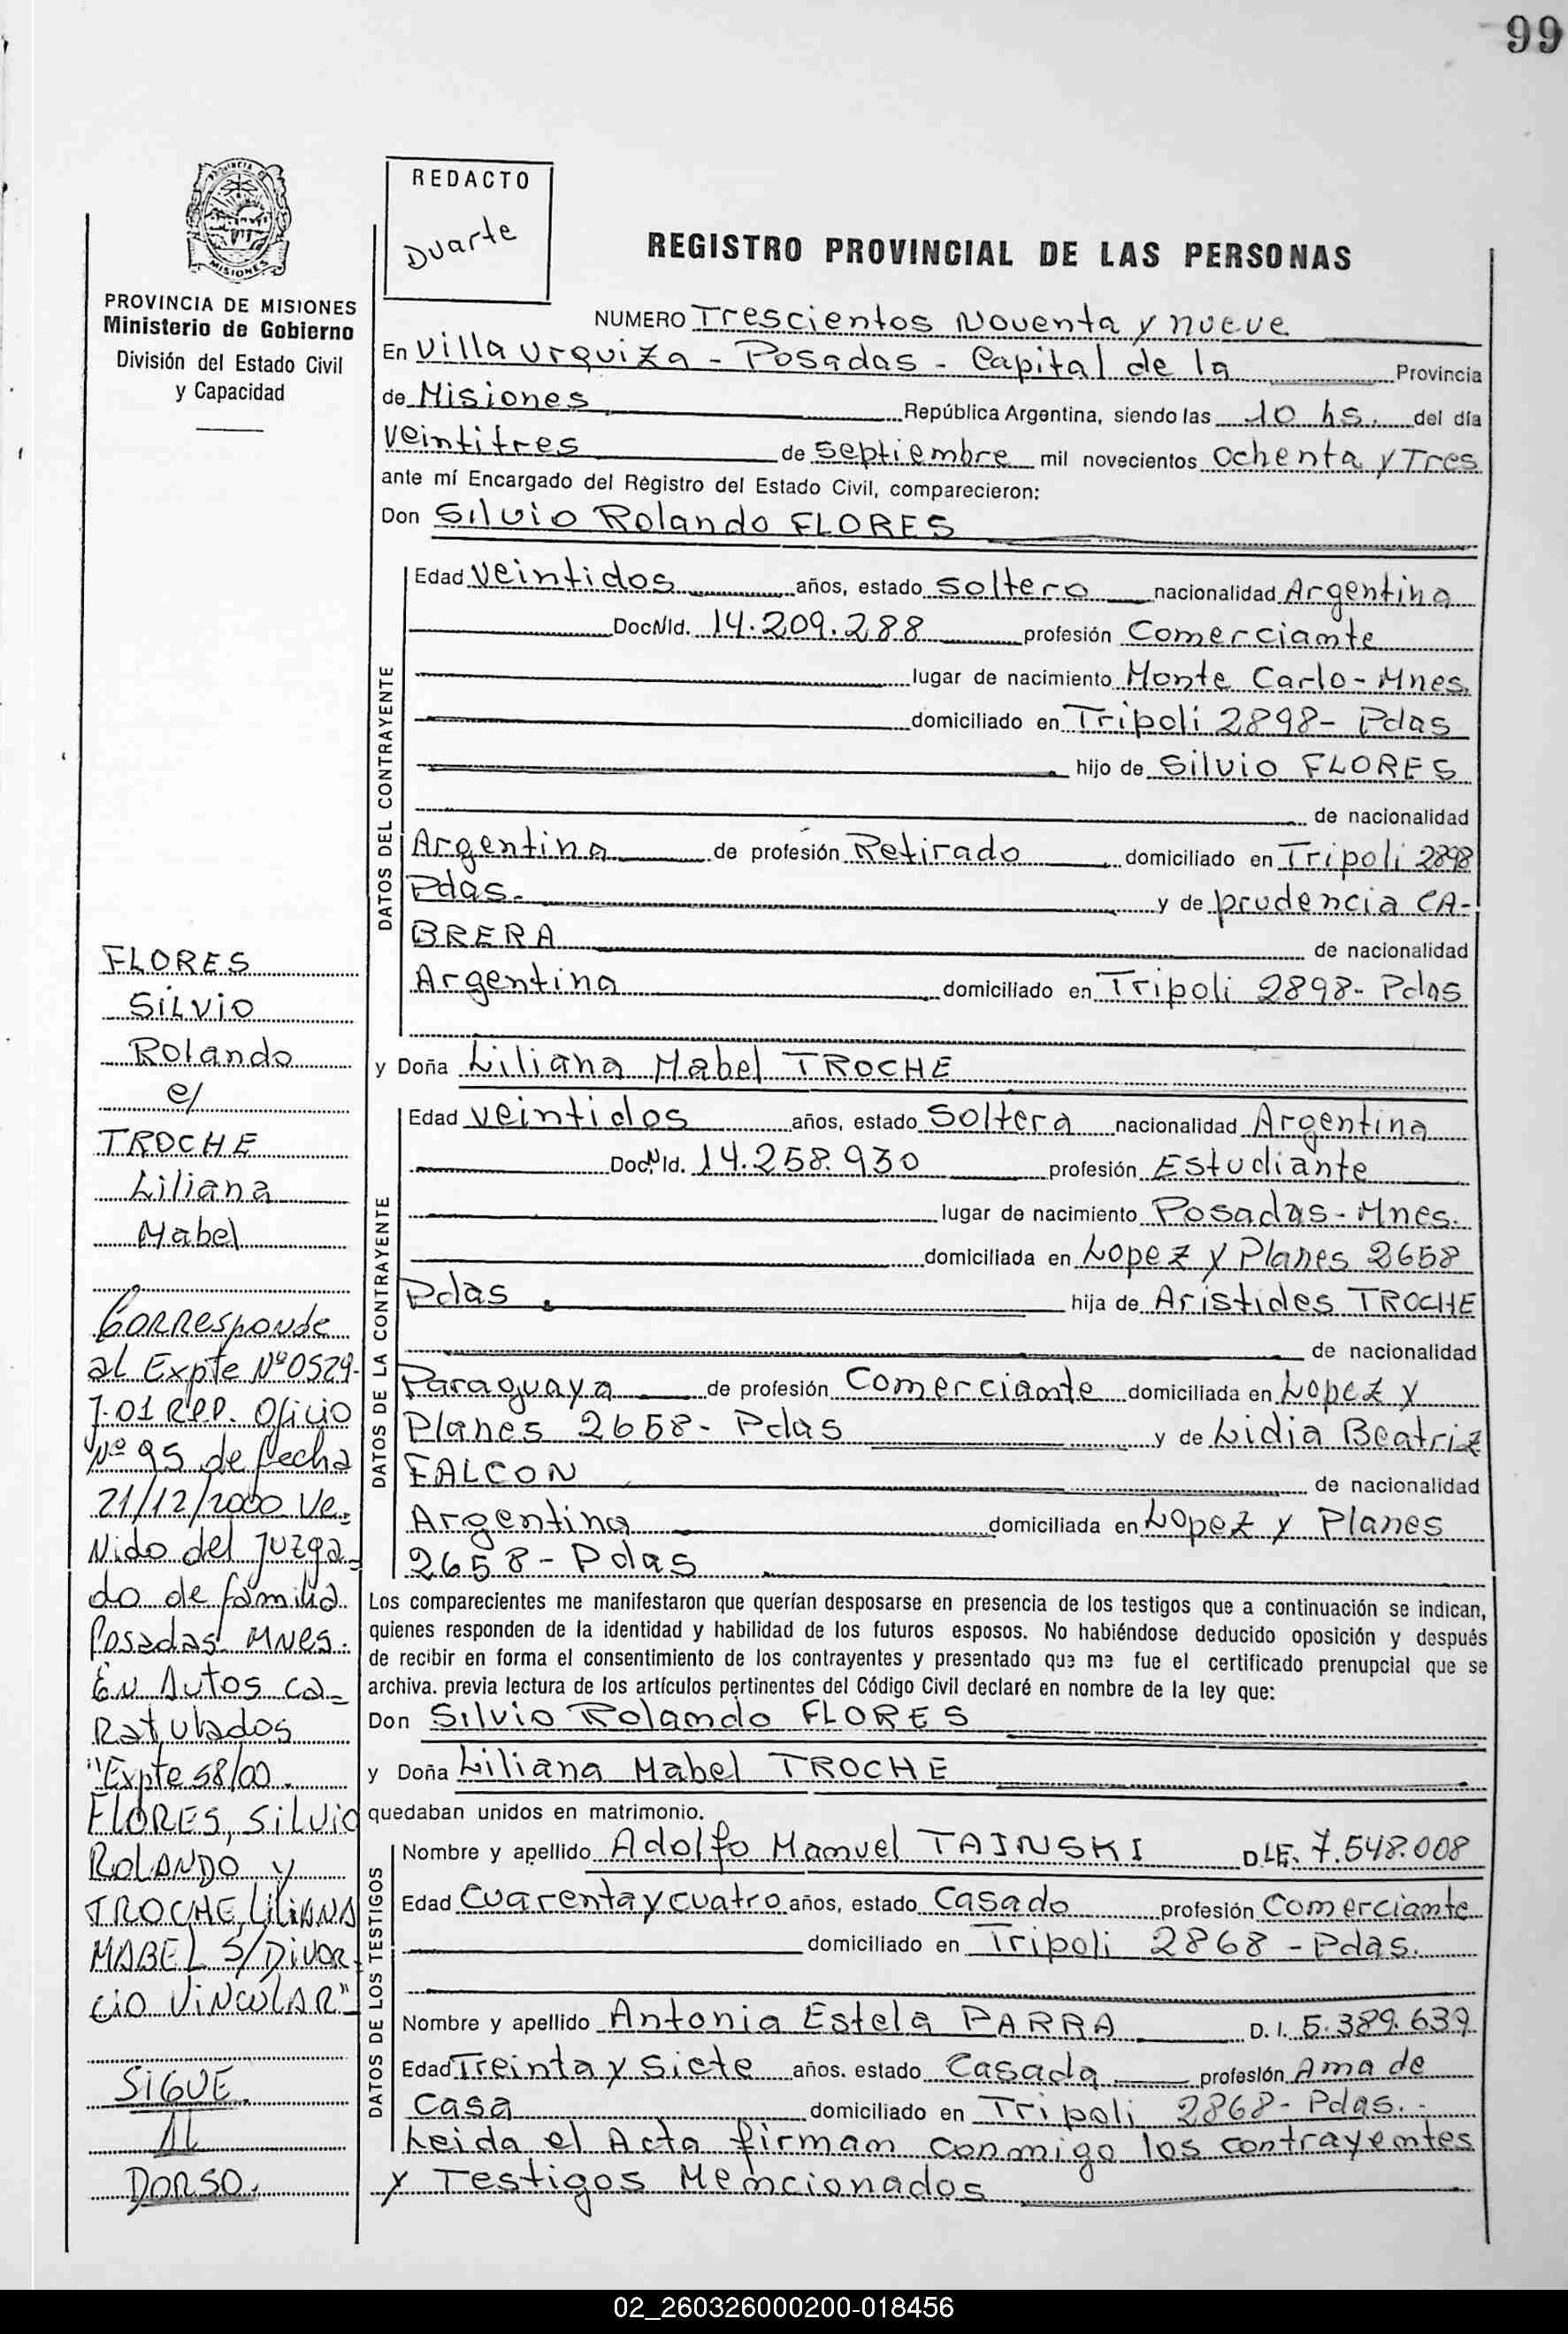 99
PROVINCIA DE MISIONES
Ministerio de Gobierno
División del Estado Civil
y Capacidad
REDACTO
Duarte
REGISTRO PROVINCIAL DE LAS PERSONAS
NUMERO Trescientos Noventa y nueve
En Villa Urquiza - Posadas - Capital de la Provincia
de Misiones República Argentina, siendo las 10 hs. del día
Veintitres de Septiembre mil novecientos Ochenta y Tres
ante mí Encargado del Registro del Estado Civil, comparecieron:
Don Silvio Rolando FLORES
DATOS DEL CONTRAYENTE
Edad Veintidos años, estado Soltero nacionalidad Argentina
Doc.N.Id. 14.209.288 profesión Comerciante
lugar de nacimiento Monte Carlo - Mnes.
domiciliado en Tripoli 2898 - Pdas
hijo de Silvio FLORES
de nacionalidad
Argentina de profesión Retirado domiciliado en Tripoli 2898
Pdas. y de prudencia CA-
BRERA de nacionalidad
Argentina domiciliado en Tripoli 2898 - Pdas
y Doña Liliana Mabel TROCHE
DATOS DE LA CONTRAYENTE
Edad Veintidos años, estado Soltera nacionalidad Argentina
Doc.N.Id. 14.258.930 profesión Estudiante
lugar de nacimiento Posadas - Mnes.
domiciliada en Lopez y Planes 2658
Pdas. hija de Aristides TROCHE
de nacionalidad
Paraguaya de profesión Comerciante domiciliada en Lopez y
Planes 2658 - Pdas y de Lidia Beatriz
FALCON de nacionalidad
Argentina domiciliada en Lopez y Planes
2658 - Pdas
Los comparecientes me manifestaron que querían desposarse en presencia de los testigos que a continuación se indican,
quienes responden de la identidad y habilidad de los futuros esposos. No habiéndose deducido oposición y después
de recibir en forma el consentimiento de los contrayentes y presentado que me fue el certificado prenupcial que se
archiva. previa lectura de los artículos pertinentes del Código Civil declaré en nombre de la ley que:
Don Silvio Rolando FLORES
y Doña Liliana Mabel TROCHE
quedaban unidos en matrimonio.
DATOS DE LOS TESTIGOS
Nombre y apellido Adolfo Manuel TAINSKI D.LE. 7.548.008
Edad Cuarenta y cuatro años, estado Casado profesión Comerciante
domiciliado en Tripoli 2868 - Pdas.
Nombre y apellido Antonia Estela PARRA D. I. 5.389.639
Edad Treinta y Siete años. estado Casada profesión Ama de
Casa domiciliado en Tripoli 2868 - Pdas.
Leida el Acta firman conmigo los contrayentes
y Testigos Mencionados
FLORES
SILVIO
Rolando
c/
TROCHE
Liliana
Mabel
Corresponde
al Expte Nº 0529-
J-01 R.P.P. Oficio
Nº 95 de fecha
21/12/2000 Ve-
Nido del Juzga-
do de familia
Posadas MNes.
En Autos ca-
Ratulados
"Expte 58/00.
FLORES, SiLVio
ROLANDO y
TROCHE, LiliANA
MABEL S/Divor-
cio ViNCULAR"
SIGUE
AL
DORSO.
02_260326000200-018456